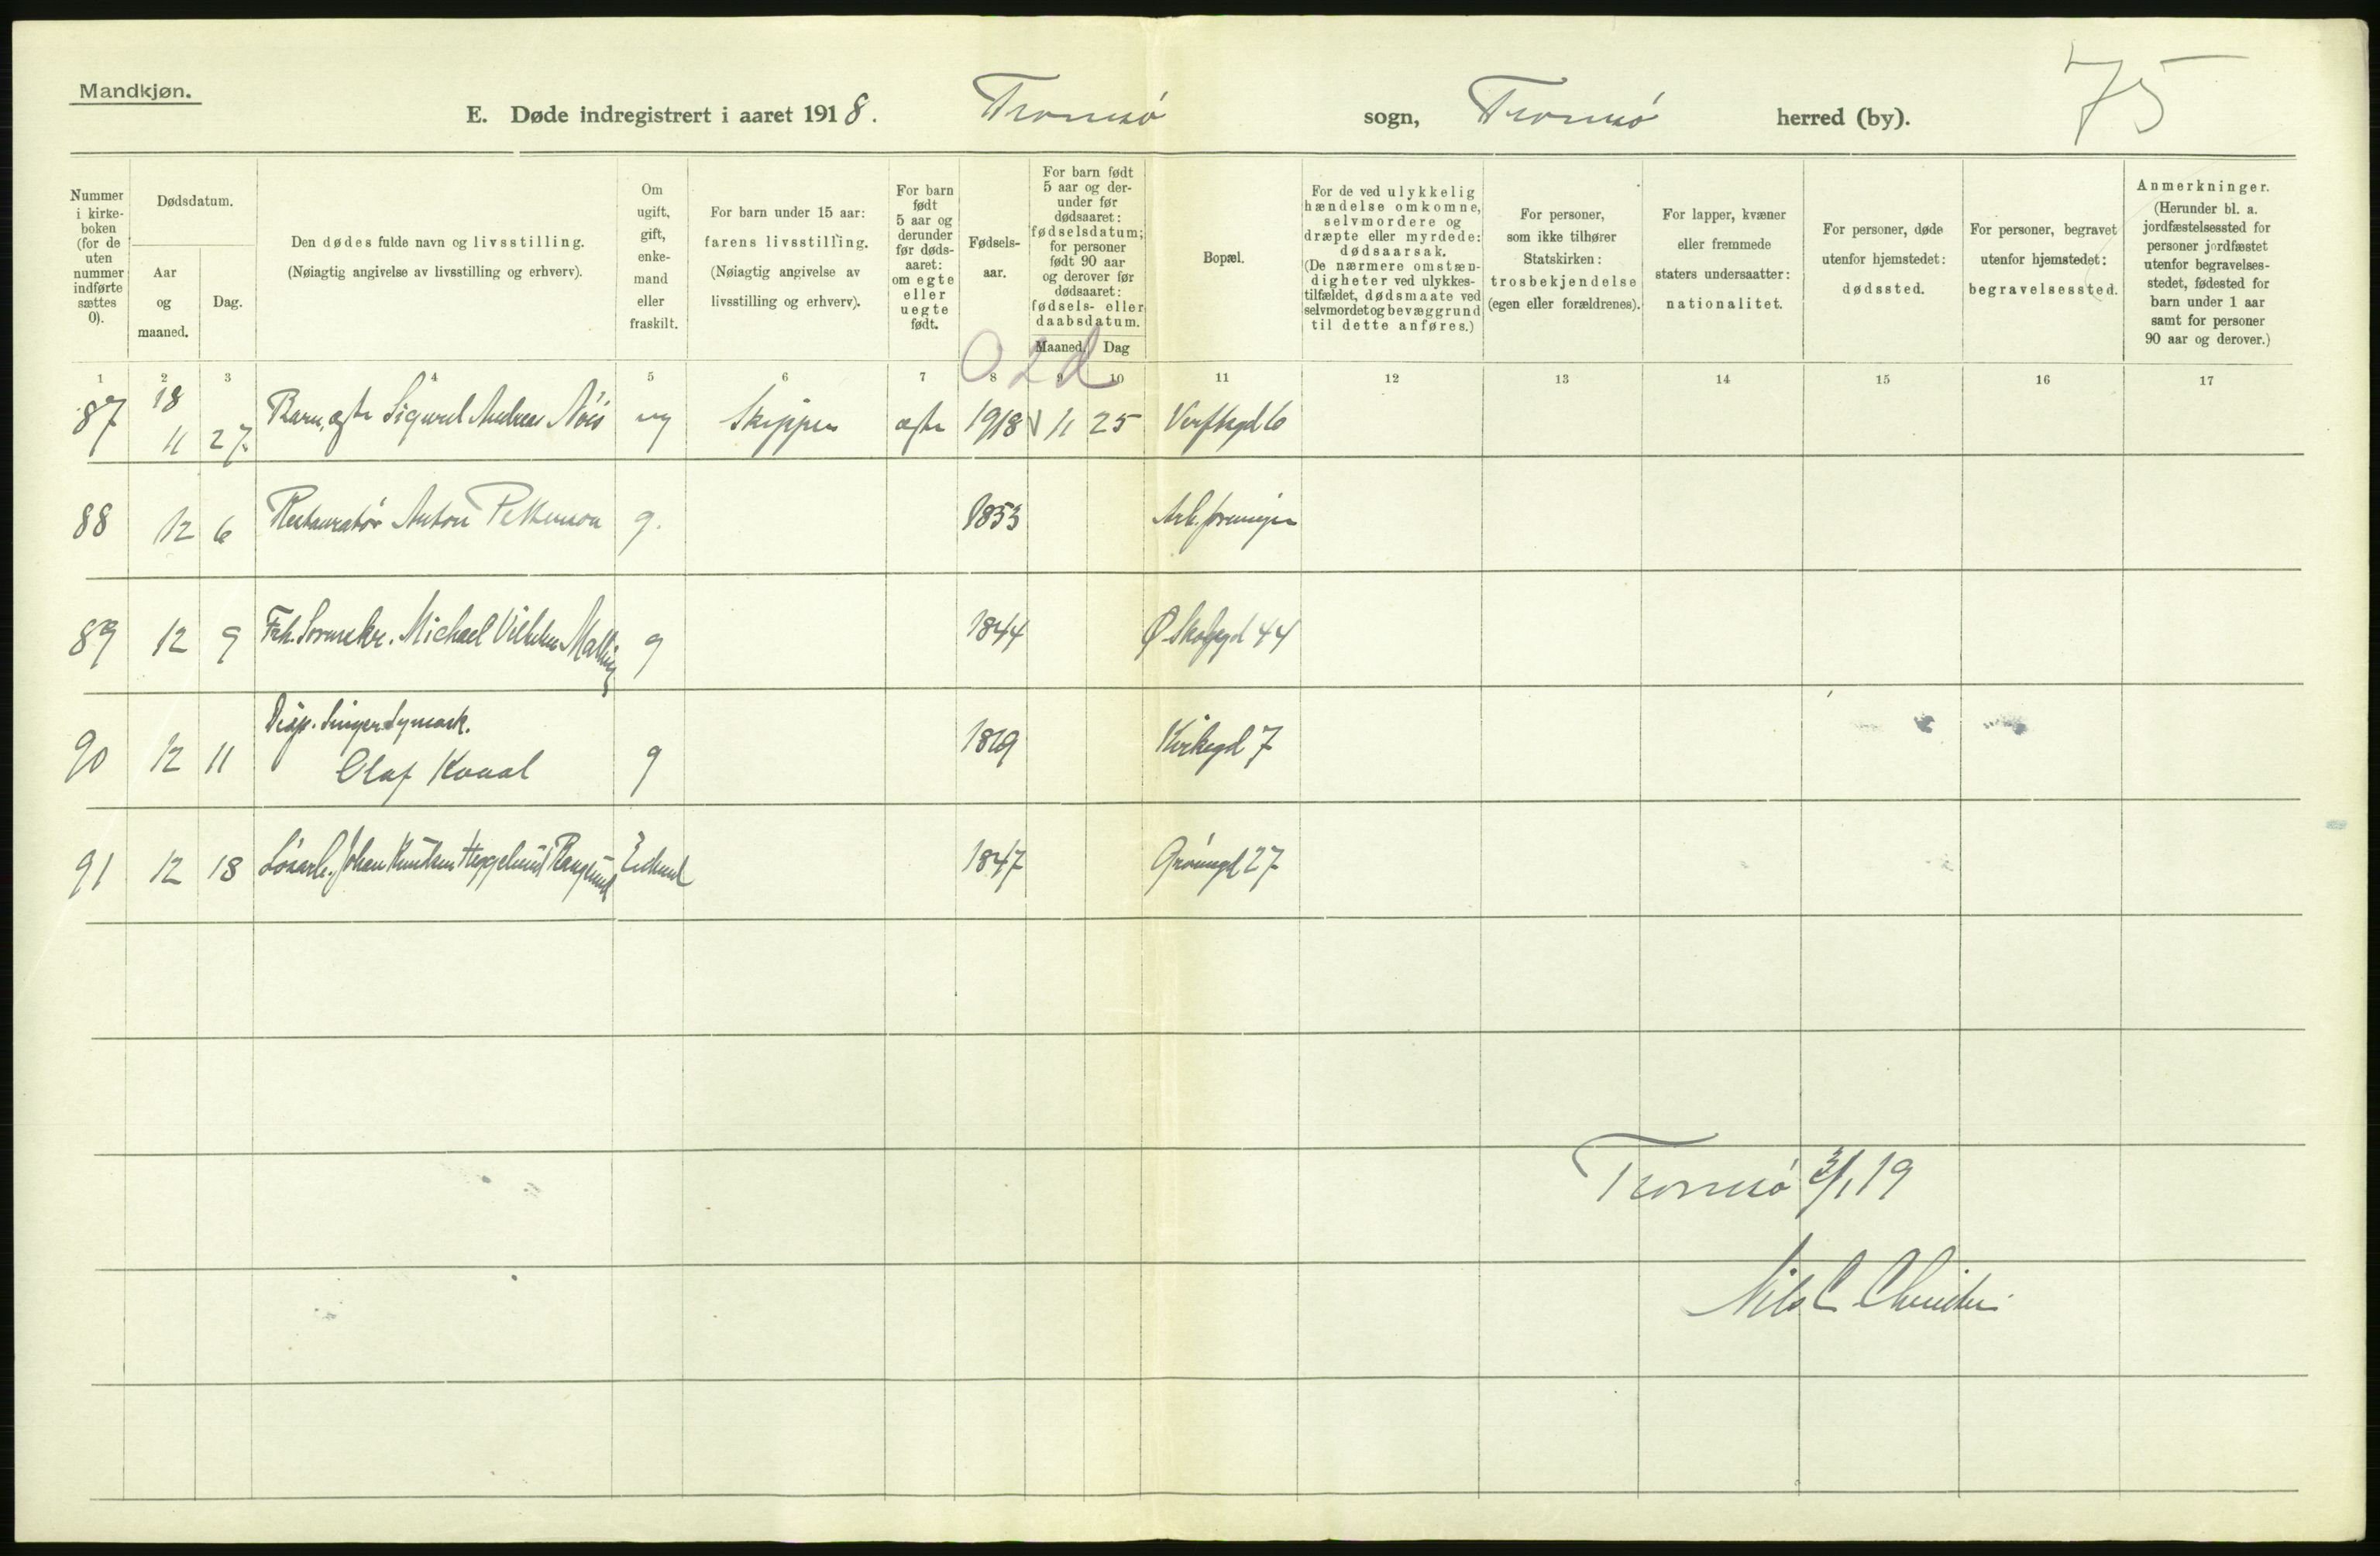 Mandkjøn.
E. Døde indregistrert i aaret 1918. Tromsø sogn, Tromsø herred (by). 75
Nummer i kirke- boken (for de uten nummer indførte sættes 0).
Dødsdatum.
Aar og maaned.
Dag.
Den dødes fulde navn og livsstilling.
(Nøiagtig angivelse av livsstilling og erhverv).
Om ugift, gift, enke- mand eller fraskilt.
For barn under 15 aar:
farens livsstilling.
(Nøiagtig angivelse av
livsstilling og erhverv).
For barn født 5 aar og derunder før døds- aaret: om egte eller uegte født.
Fødsels- aar.
For barn født 5 aar og der- under før dødsaaret: fødselsdatum; for personer født 90 aar og derover før dødsaaret: fødsels- eller daabsdatum.
Maaned. Dag
Bopæl.
For de ved ulykkelig hændelse omkomne, selvmordere og dræpte eller myrdede: dødsaarsak. (De nærmere omstæn- digheter ved ulykkes- tilfældet, dødsmaate ved selvmordet og bevæggrund til dette anføres.)
For personer, som ikke tilhører Statskirken: trosbekjendelse (egen eller forældrenes).
For lapper, kvæner eller fremmede staters undersaatter: nationalitet.
For personer, døde utenfor hjemstedet: dødssted.
For personer, begravet utenfor hjemstedet: begravelsessted.
Anmerkninger. (Herunder bl. a. jordfæstelsessted for personer jordfæstet utenfor begravelses- stedet, fødested for barn under 1 aar samt for personer 90 aar og derover.)
0 2d
1 2 3 4 5 6 7 8 9 10 11 12 13 14 15 16 17
87 18 11 27. Barn, ægte Sigurd Andreas Nøis ug Skipper ægte 1918 11 25 Verftsgd 6
88 12 6 Restauratør Anton Pettersson g. 1853 Arb.foreningen
89 12 9 Fhv. Sorenskr. Michael Vilhelm Malling g 1844 Ø Skolegd 44
90 12 11 Disp. Singer Symask.
Olaf Kvaal g Kirkegd 7
91 12 18 Løsarb. Johan Knudsen Heggelund Enkmd 1847 Grønnegd 27
Tromsø 3/1 19
Nils C